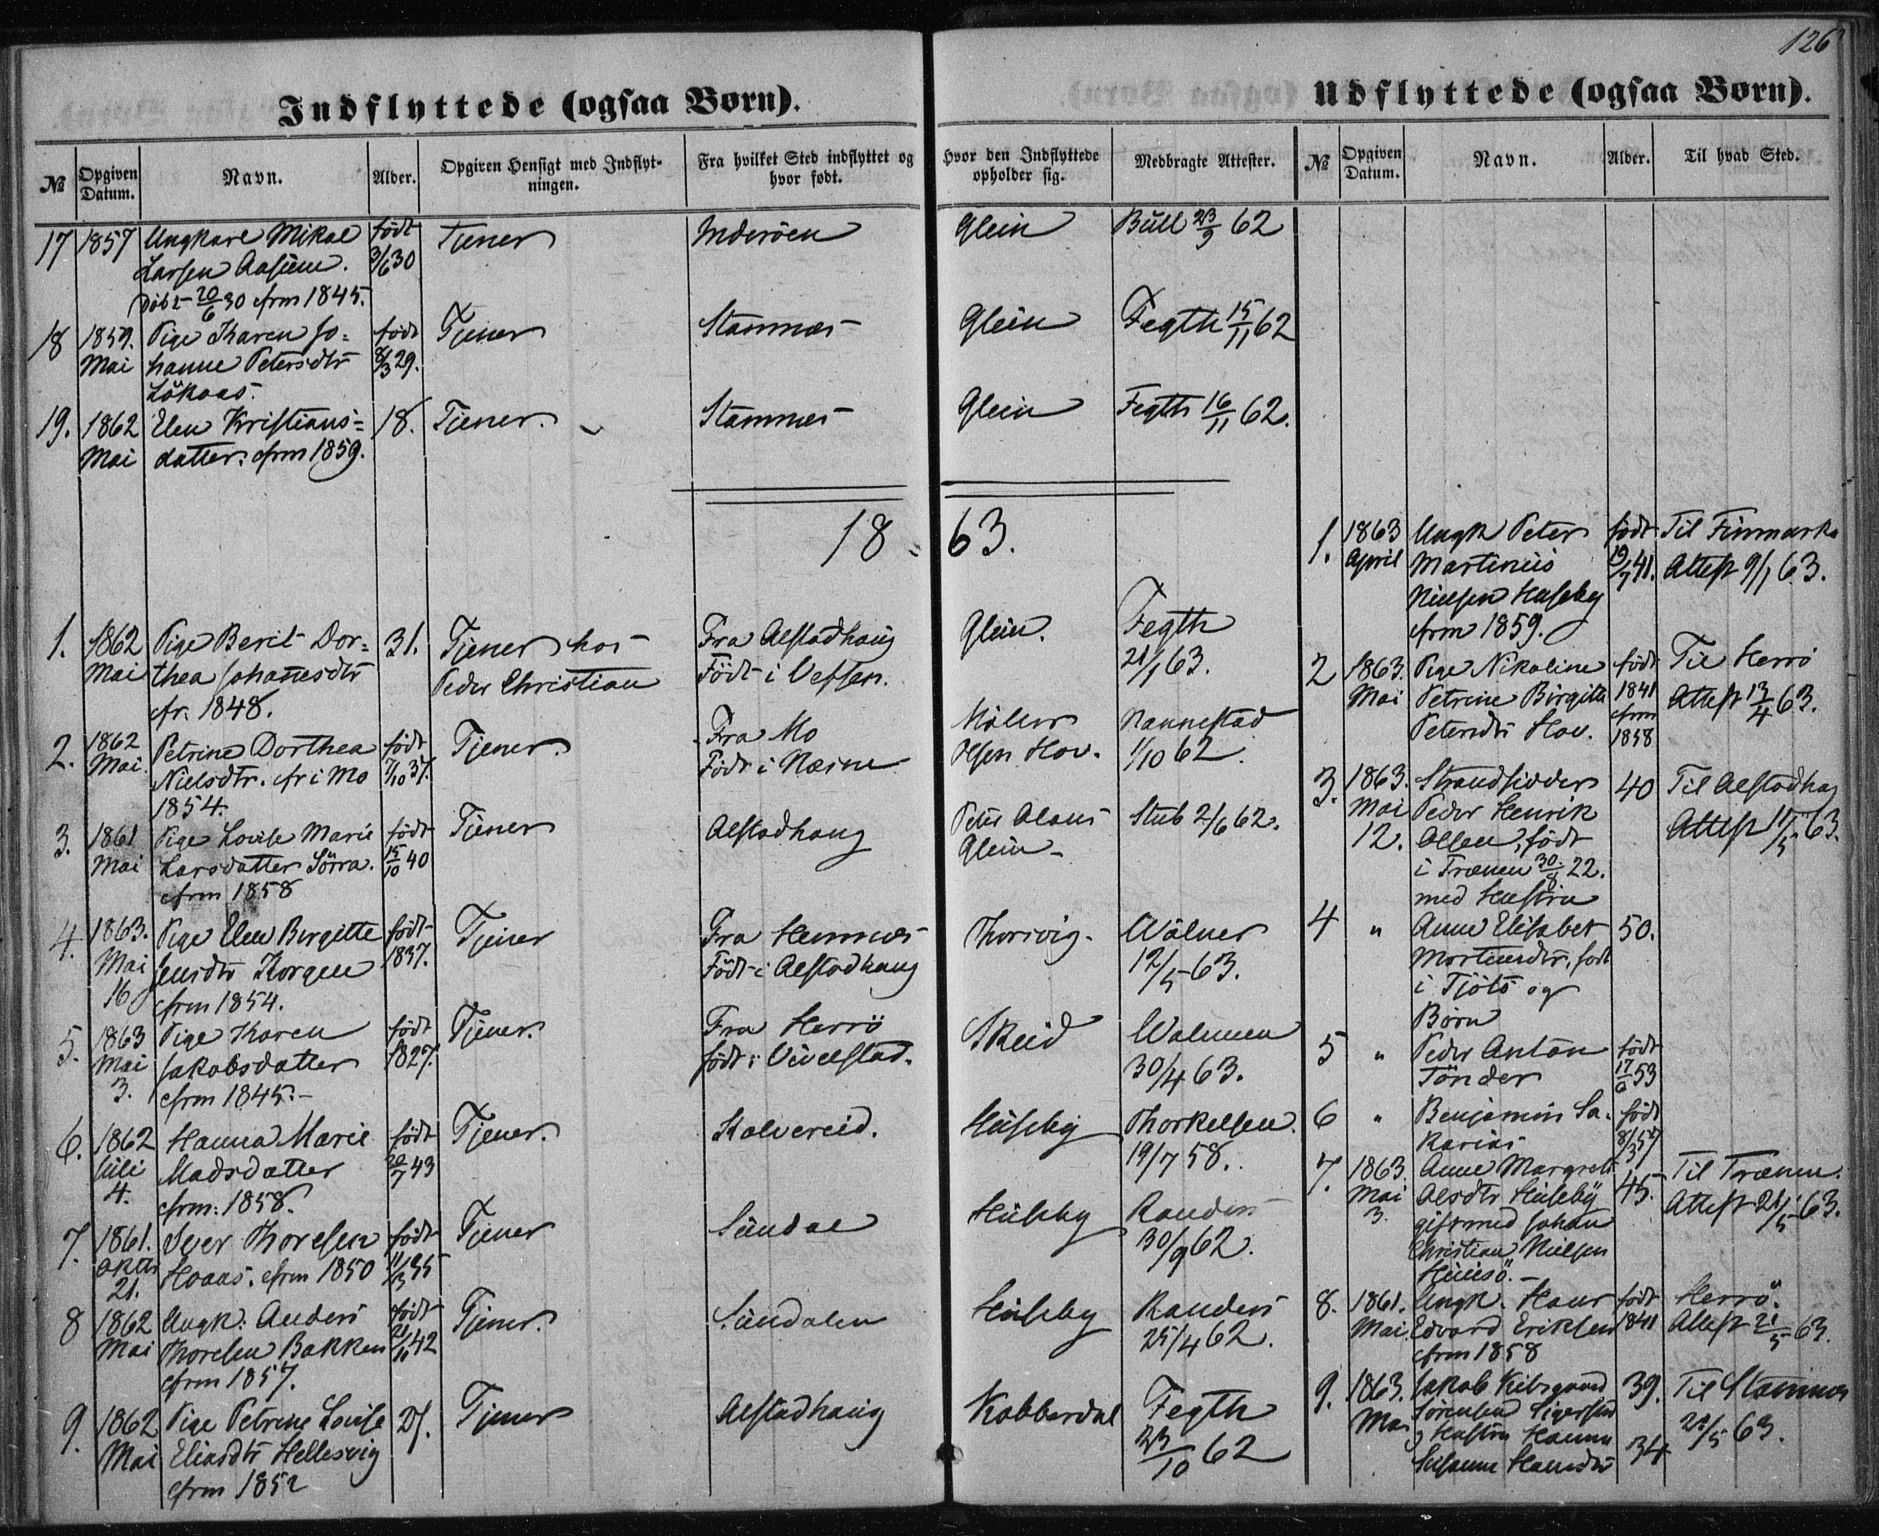 126
Indflyttede (ogsaa Børn).
Udflyttede (ogsaa Børn).
№
Opgiven Datum.
Navn.
Alder.
Opgiven Hensigt med Indflyt-
ningen.
Fra hvilket Sted indflyttet og
hvor født.
Hvor den Indflyttede
opholder sig.
Medbragte Attester.
№
Opgiven Datum.
Navn.
Alder.
Til hvad Sted.
17 1857 Ungkarl Mikal født Tjener Inderöen Glein Bull 23/9 62
Larsen Aasum. 3/6 30
Döbt 20/6 30 cfrm 1845.
18 1859. Pige Karen Jo= født Tjener Stamnæs Glein Fegth 15/11 62
Mai hanne Petersdtr 8/3 29.
Lökaas.
19. 1862 Elen Kristians= 18. Tjener. Stamnes Glein Fegth 16/11 62.
Mai datter. cfrm 1859.
1863.
1. 1862 Pige Berit Dor= 31. Tjener hos Fra Alstadhaug Glein. Fegth
Mai thea Johannesdtr Peder Christian Födt i Vefsen. 21/1 63.
cfr. 1848.
2. 1862 Petrine Dorthea født Tjener. Fra Mo Nannestad
Mai. Nielsdtr. cfr i Mo 7/10 37. Födt i Næsne Olsen Hov. 1/10 62.
1854.
3. 1861 Pige Lovise Marie født Tjener Alstadhaug Peter Olaus Stub 2/6 62.
Mai Larsdatter Sörra. 15/10 40 Glein
cfrm 1858
4. 1863. Pige Elen Birgitte født Tjener Fra Hemnæs Thorsvig. Wölner
Mai Jensdtr Korgen 1837. Födt i Alstadhaug 12/5 63.
16 cfrm 1854.
5. 1863 Pige Karen født Tjener. Fra Herrö Skeid
Mai Jakobsdatter 1827. født i Vivelstad. 30/4 63.
3. cfrm 1845.
6. 1862 Hanna Marie født Tjener. Kolvereid. Huseby Thorkelsen.
Juli Madsdatter 20/7 43 19/7 58.
4. cfrm. 1858.
7. 1861. Iver Thoresen født Tjener Sundal Huseby Randers
Oktbr Hoaas. cfrm 1850 11/3 35 30/9 62.
21.
8 1862 Ungk. Anders født Tjener. Sundalen Huseby Randers
Mai Thoresen Bakken 21/11 42 25/4 62.
cfrm 1857.
9. 1862 Pige Petrine Lovise 25. Tjener Alstadhaug Kobberdal Fegth
Mai Eliasdtr Hellesvig 23/10 62
cfrm 1852
1. 1863 Ungk Peter født Til Finmarken
April Martinus 19/7 41. Attest 9/1 63.
Nielsen Huseby
cfrm 1859.
2 1863. Pige Nikoline født Til Herrö
Mai Petrine Birgitte 1841 Attest 13/4 63.
Petersdtr Hov. cfrm 1858
3. 1863. Strandsidder 40 Til Alstadhaug
Mai Peder Henrik Attest 11/5 63.
12. Olsen, født
i Trænen 30/8 22.
med Hustru
4 " Anne Elisabet 50.
Mortensdtr, født
i Tjötö og
Børn
5 " Peder Anton født
Tönder 17/6 53
6 " Benjamin Sa= født
karias 8/3 57
7. 1863. Anne Margrete 45. Til Trænen.
Mai Olsdtr Huseby Attest 21/5 63.
3. gift med Johan
Christian Nielsen
Husö.
8. 1861. Ungk. Hans født Herrö.
Mai. Edvard Eriksen 1841 Attest 21/5 63.
cfrm 1858
9. 1863. Jakob Kibsgaard 39. Til Stamnes
Mai Sörensen 21/5 63.
og Hustru Hanna
Susanne Hansdtr 34